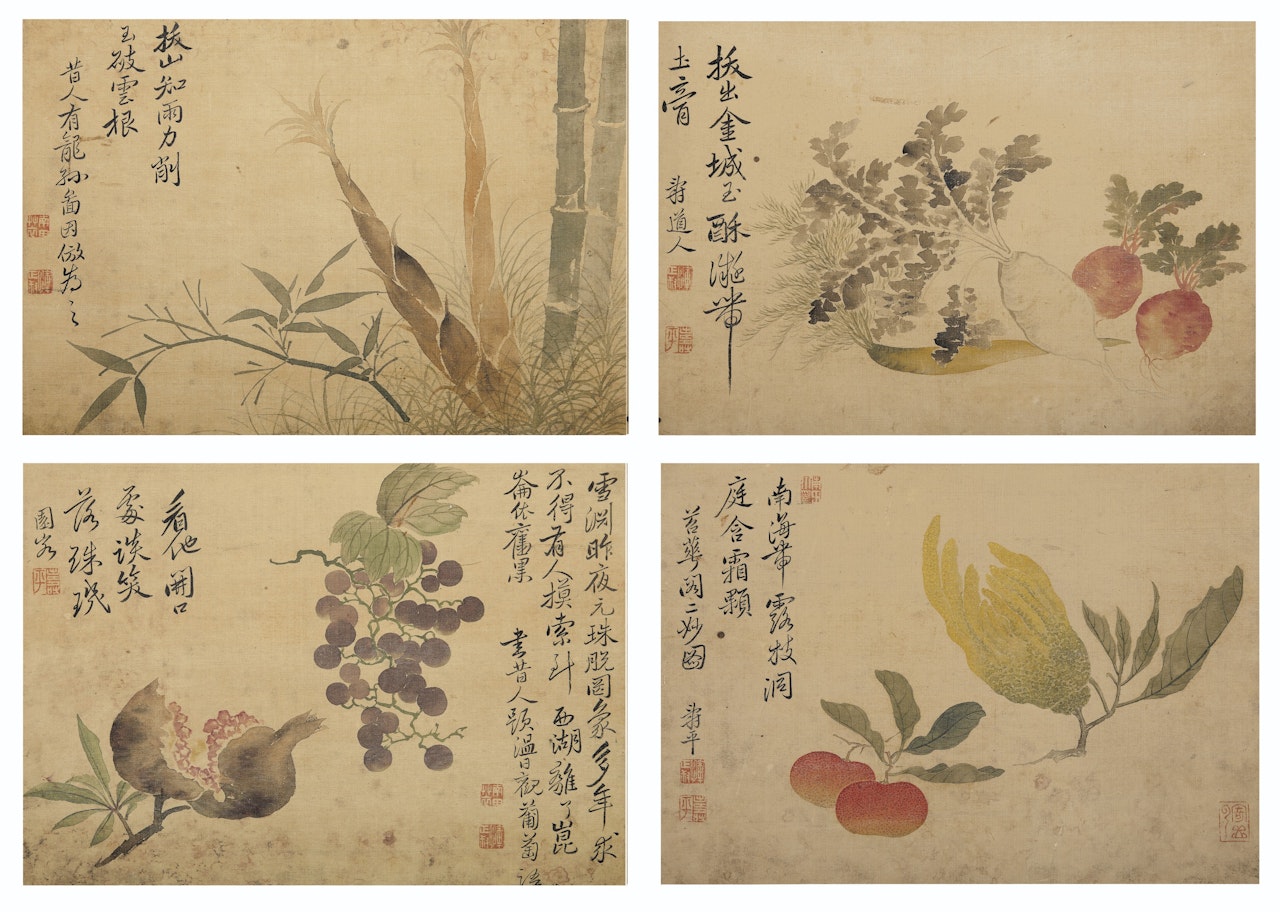 拔山知雨力削
玉破雲根
昔人有龍孫啚因倣為之
拔出金城玉酥濨帶
土膏
壽道人
雪淵昨夜元珠脫罔象多年求
不得有人摸索到西湖雜了崑
崙依舊黑
書昔人題溫日觀葡萄
看他開口
處談笑
落珠璣
園客
南海帶露枝洞
庭含霜顆
苕華閣二妙圖
壽平